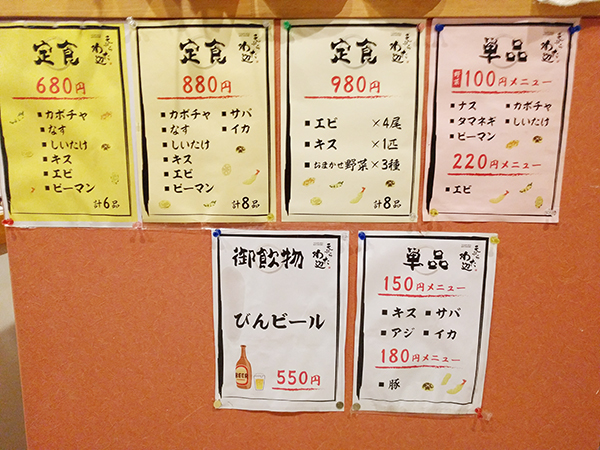 定食
天ぷら
わたび
680円
■カボチャ
■なす
■しいたけ
■キス
■エビ
■ピーマン
計6品
定食
880円
■カボチャ ■サバ
■なす ■イカ
■しいたけ
■キス
■エビ
■ピーマン
計8品
定食
980円
■エビ ×4尾
■キス ×1匹
■おまかせ野菜×3種
計8品
単品
100円メニュー
■ナス ■カボチャ
■タマネギ ■しいたけ
■ピーマン
220円メニュー
■エビ
御飲物
びんビール
BEER
550円
単品
150円メニュー
■キス ■サバ
■アジ ■イカ
180円メニュー
■豚